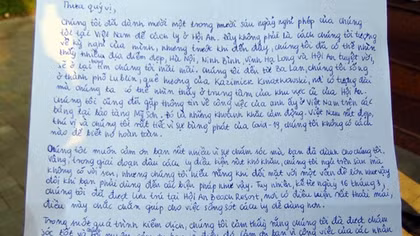 Thưa quý vị,
Chúng tôi đã dành mười một trong mười sáu ngày nghỉ phép của chúng
tôi tại Việt Nam để cách ly ở Hội An. Đây không phải là cách chúng tôi tưởng
về kỳ nghỉ của mình, nhưng trước khi đến đây, chúng tôi đã có thể nhìn
thấy nhiều địa điểm đẹp, Hà Nội, Ninh Bình, Vịnh Hạ Long và Hội An tuyệt vời
sẽ ở lại tim chúng tôi mãi mãi. Chúng tôi đến từ Ba Lan, chúng tôi sống
ở thành phố Lublin, quê hương của Kazimierz Kwiatkowski, nơi có tượng đài
mà chúng ta có thể nhìn thấy ở trung tâm của khu vực cũ của Hội An.
Chúng tôi cũng đã gặp thông tin về công việc của anh ấy ở Việt Nam trên các
bảng tại bảo tàng Mỹ Sơn. Đó là những khoảnh khắc cảm động. Việt Nam rất đẹp,
thú vị và chúng tôi rất tiếc vì sự bùng phát của Covid-19, chúng tôi không có cách
nào để biết nó hoàn toàn.
Chúng tôi muốn cảm ơn bạn rất nhiều vì sự chăm sóc mà bạn đã dành cho chúng tôi.
Vâng, trong giai đoạn đầu cách ly điều kiện rất khó khăn, chúng tôi ngủ trên sàn mà
không có vòi sen, nhưng chúng tôi hiểu rằng khi đối mặt với một vấn đề lớn như vậy
đôi khi bạn phải dùng đến các biện pháp như vậy. Tuy nhiên, kể từ ngày 16 tháng 3,
chúng tôi đã được lưu trú tại Hội An Beach Resort, nơi có điều kiện rất thoải mái,
điều này chắc chắn giúp cho việc sống sót cách ly dễ dàng hơn.
Trong suốt quá trình kiểm dịch, chúng tôi cảm thấy rằng chúng tôi đã được chăm
sóc tốt và